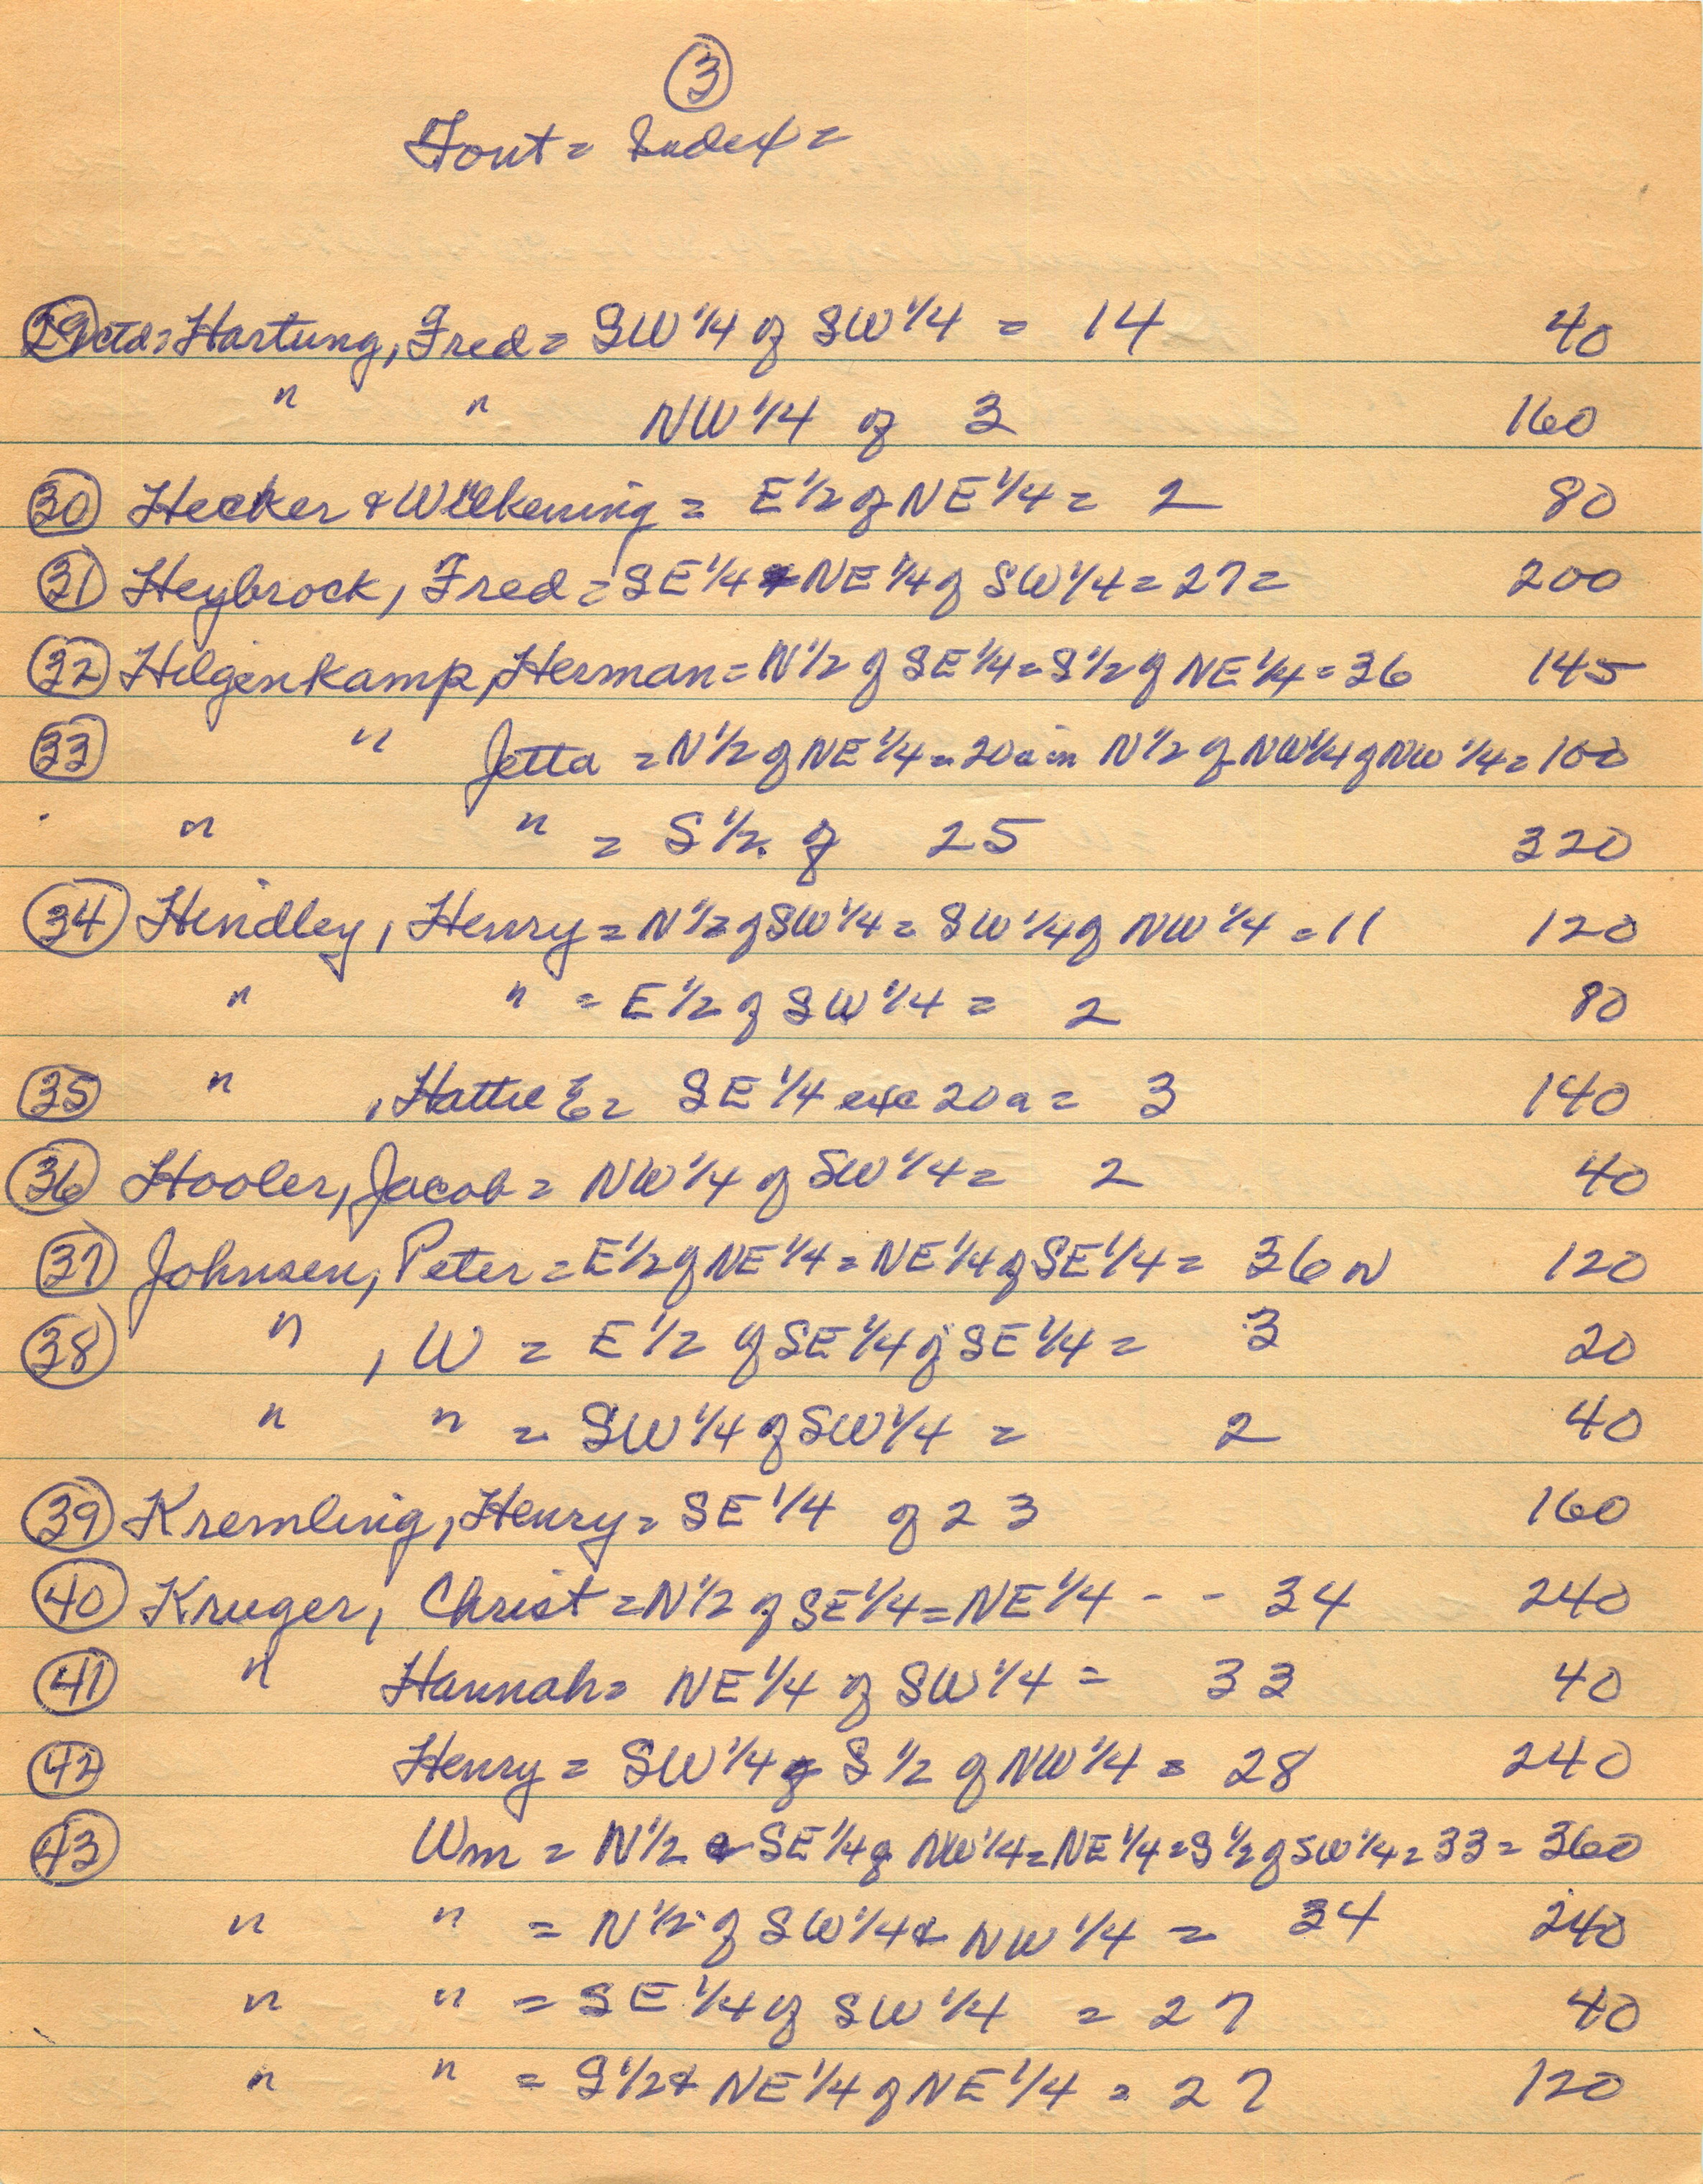 3
Font = Index =
29 ctd = Hartung, Fred = SW 1/4 of SW 1/4 = 14 40
" " NW 1/4 of 3 160
30 Hecker & Wilkening = E 1/2 of NE 1/4 = 2 80
31 Heybrock, Fred = SE 1/4 & NE 1/4 of SW 1/4 = 27 = 200
32 Hilgenkamp, Herman = N 1/2 of SE 1/4 = S 1/2 of NE 1/4 = 36 145
33 " Jetta = N 1/2 of NE 1/4 = 20a in N 1/2 of NW 1/4 of NW 1/4 = 100
" " = S 1/2 of 25 320
34 Hindley, Henry = N 1/2 of SW 1/4 = SW 1/4 of NW 1/4 = 11 120
" " = E 1/2 of SW 1/4 = 2 80
35 " , Hattie E = SE 1/4 exc 20a = 3 140
36 Hooler, Jacob = NW 1/4 of SW 1/4 = 2 40
37 Johnsen, Peter = E 1/2 of NE 1/4 = NE 1/4 of SE 1/4 = 36 N 120
38 " , W = E 1/2 of SE 1/4 of SE 1/4 = 3 20
" " = SW 1/4 of SW 1/4 = 2 40
39 Kremling, Henry = SE 1/4 of 23 160
40 Kruger, Christ = N 1/2 of SE 1/4 = NE 1/4 - - 34 240
41 " Hannah = NE 1/4 of SW 1/4 = 33 40
42 Henry = SW 1/4 & S 1/2 of NW 1/4 = 28 240
43 Wm = N 1/2 & SE 1/4 of NW 1/4 = NE 1/4 = S 1/2 of SW 1/4 = 33 = 360
" " = N 1/2 of SW 1/4 & NW 1/4 = 34 240
" " = SE 1/4 of SW 1/4 = 27 40
" " = S 1/2 & NE 1/4 of NE 1/4 = 27 120